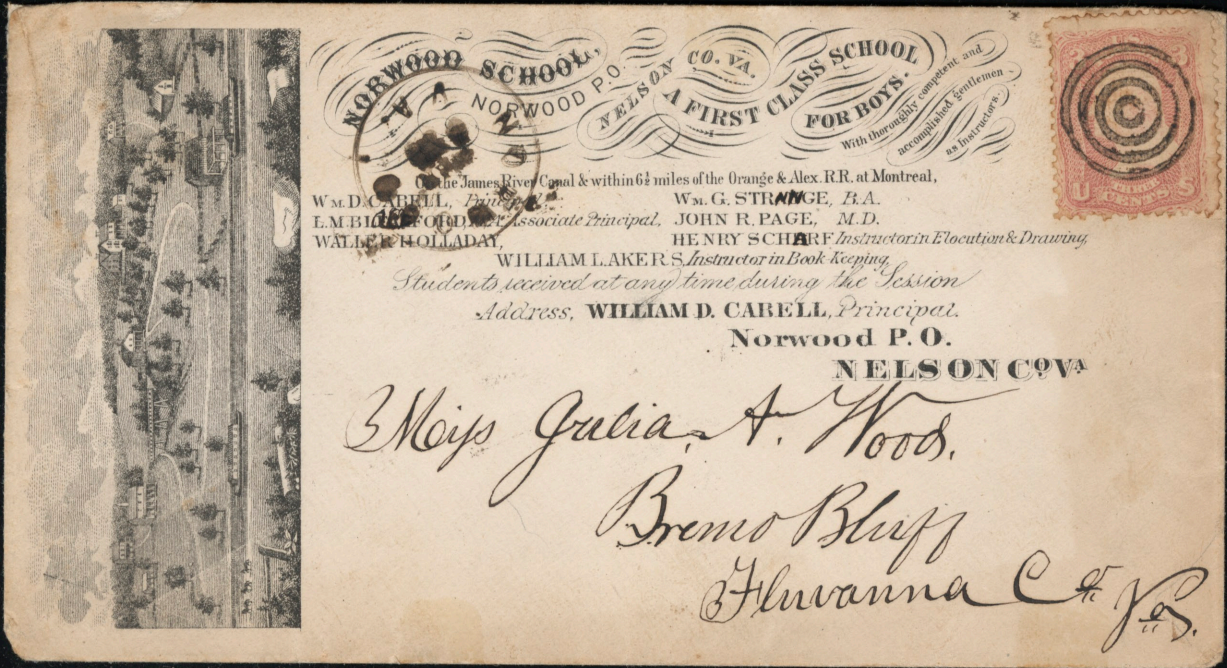 NORWOOD SCHOOL,
NORWOOD P.O.
NELSON CO. VA.
A FIRST CLASS SCHOOL
FOR BOYS.
With thoroughly competent and
accomplished gentlemen
as Instructors.
On the James River Canal & within 6½ miles of the Orange & Alex. R.R. at Montreal,
WM. D. CABELL, Principal. WM. G. STRANGE, B.A.
L.M. BLACKFORD, M.A. Associate Principal, JOHN R. PAGE, M.D.
WALLER HOLLADAY, HENRY SCHARF Instructor in Elocution & Drawing,
WILLIAM L. AKERS, Instructor in Book-Keeping
Students received at any time during the Session
Address, WILLIAM D. CABELL, Principal.
Norwood P.O.
NELSON CO. VA
Miss Julia. A. Woods.
Bremo Bluff
Fluvanna Co. Va.
U.S.
3
U S
CENTS